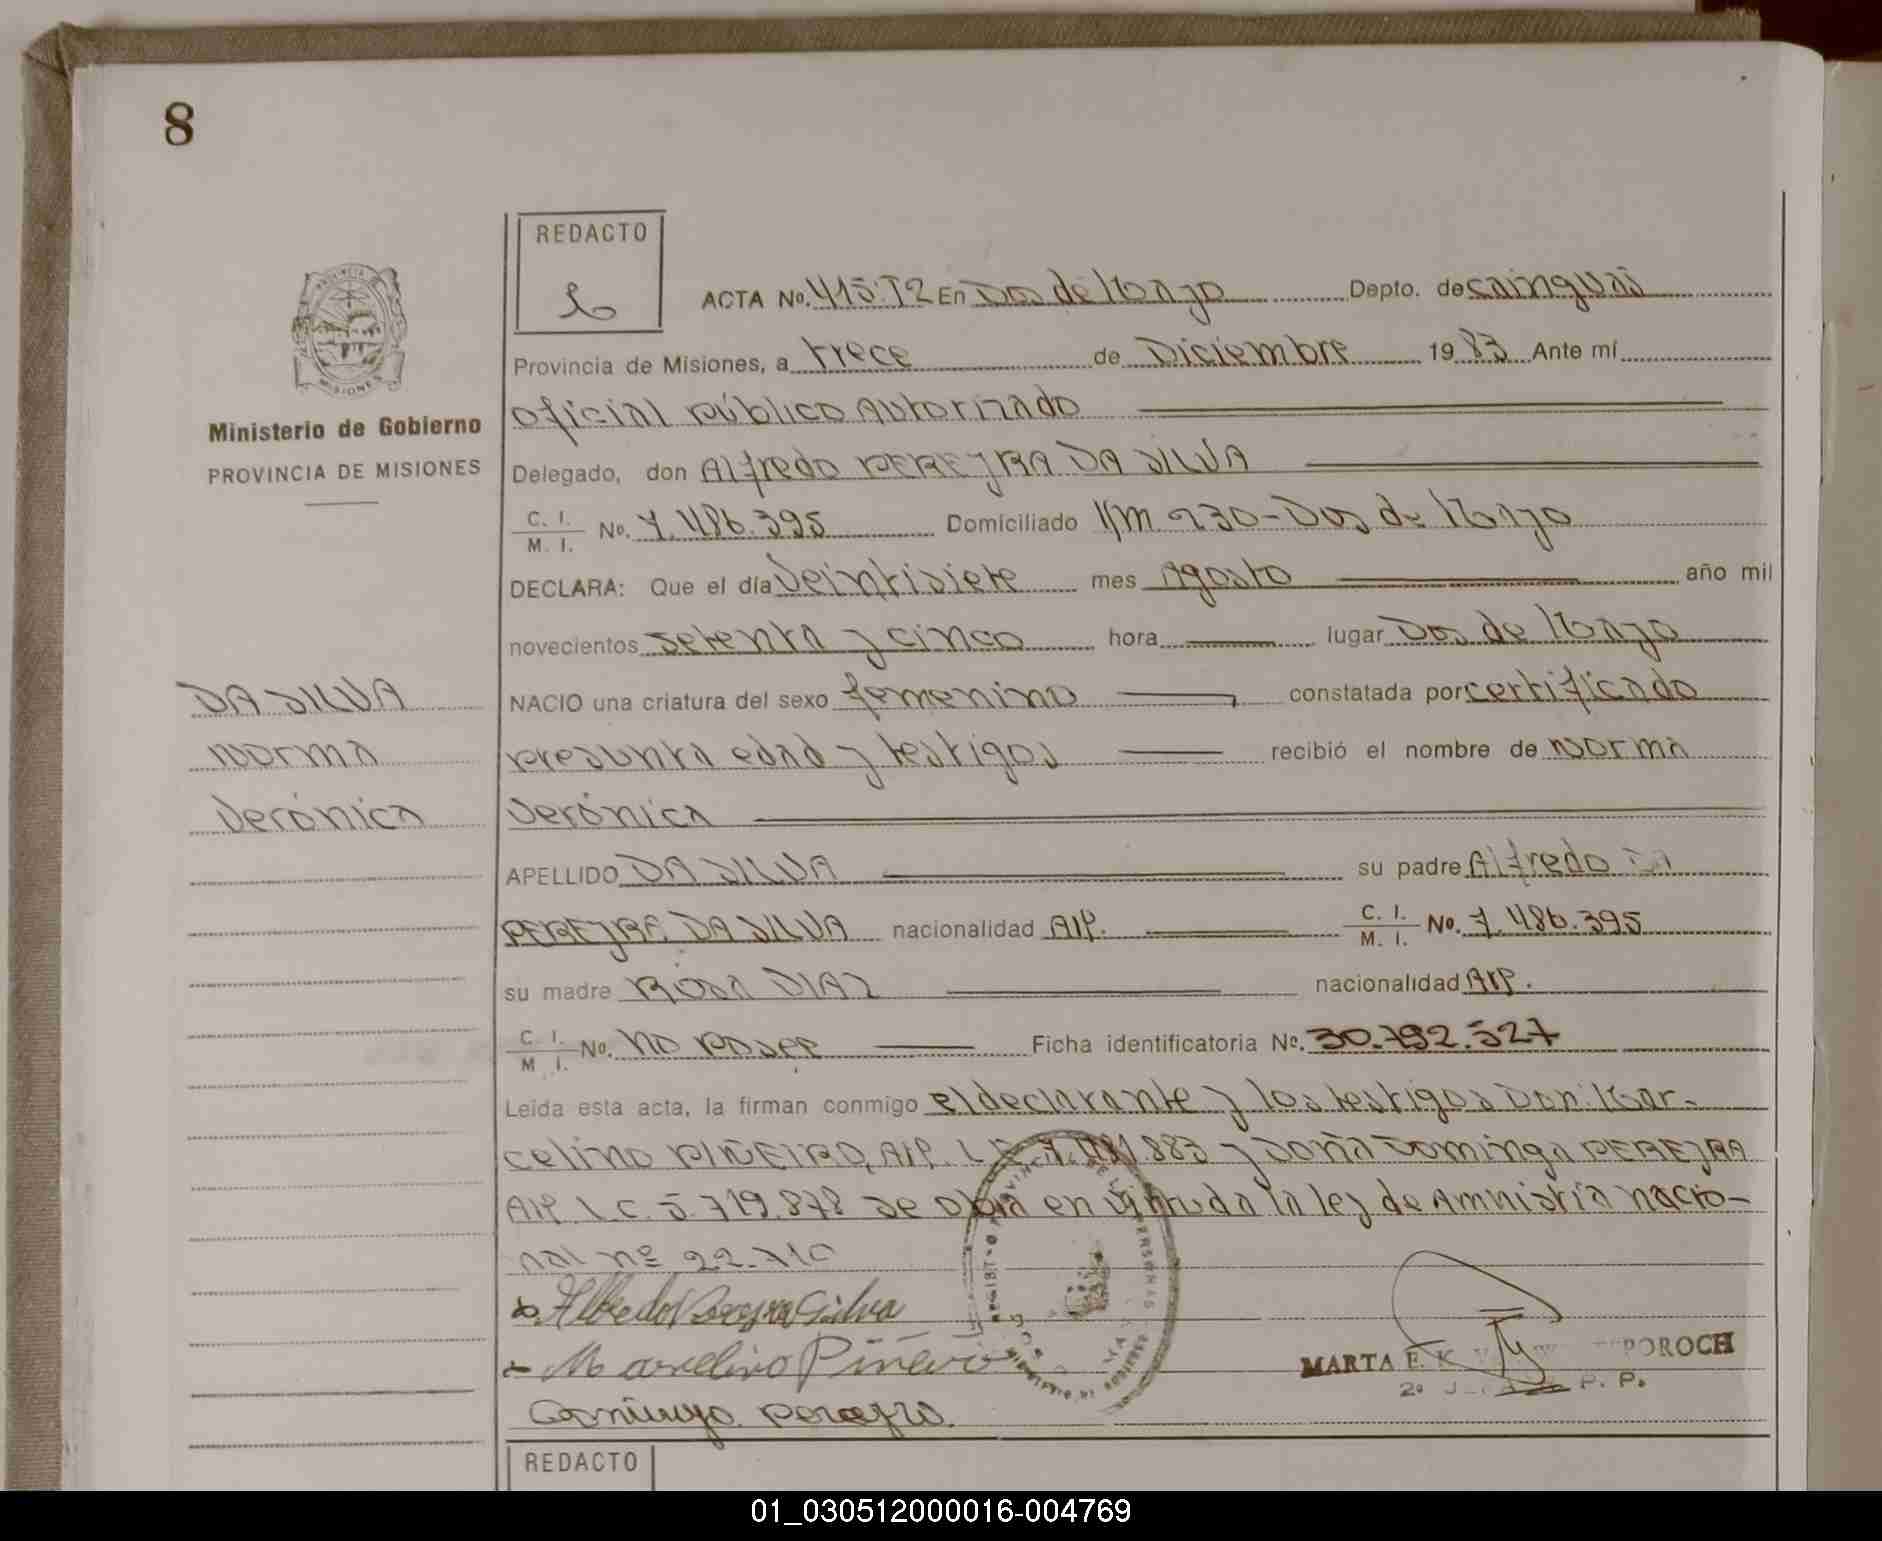 8
REDACTO
ACTA No. 415 T2 En Dos de Mayo Depto. de Cainguás
Provincia de Misiones, a trece de Diciembre 1983 Ante mí
Oficial público Autorizado
Delegado, don Alfredo PEREYRA DA SILVA
C. I.
M. I. No. 7.486.395 Domiciliado Km 230 - Dos de Mayo
DECLARA: Que el día Veintisiete mes Agosto año mil
novecientos setenta y cinco hora lugar Dos de Mayo
NACIO una criatura del sexo femenino constatada por certificado
presunta edad y testigos recibió el nombre de Norma
Verónica
APELLIDO DA SILVA su padre Alfredo
PEREYRA DA SILVA nacionalidad Arg. C. I.
M. I. No. 7.486.395
su madre Rosa DIAZ nacionalidad Arg.
C. I.
M. I. No. no posee Ficha identificatoria No. 30.792.527
Leída esta acta, la firman conmigo el declarante y los testigos Don: Mar-
celino PIÑEIRO, Arg. L.E. 7.481.883 y Doña Dominga PEREYRA
Arg. L.C. 5.719.878 se obra en virtud a la ley de Amnistía nacio-
nal nº 22.710
Alfredo Pereyra Silva
Marcelino Piñeiro
Dominga Pereyra.
MARTA E. K POROCH
P. P.
PROVINCIA
MISIONES
Ministerio de Gobierno
PROVINCIA DE MISIONES
DA SILVA
Norma
Verónica
REDACTO
01_030512000016-004769